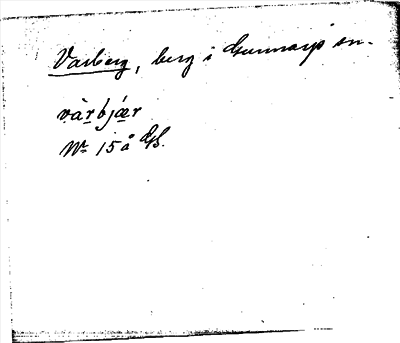 Varberg, berg i Gunnarps sn.
vàrbjær
Nr 15 å GS.